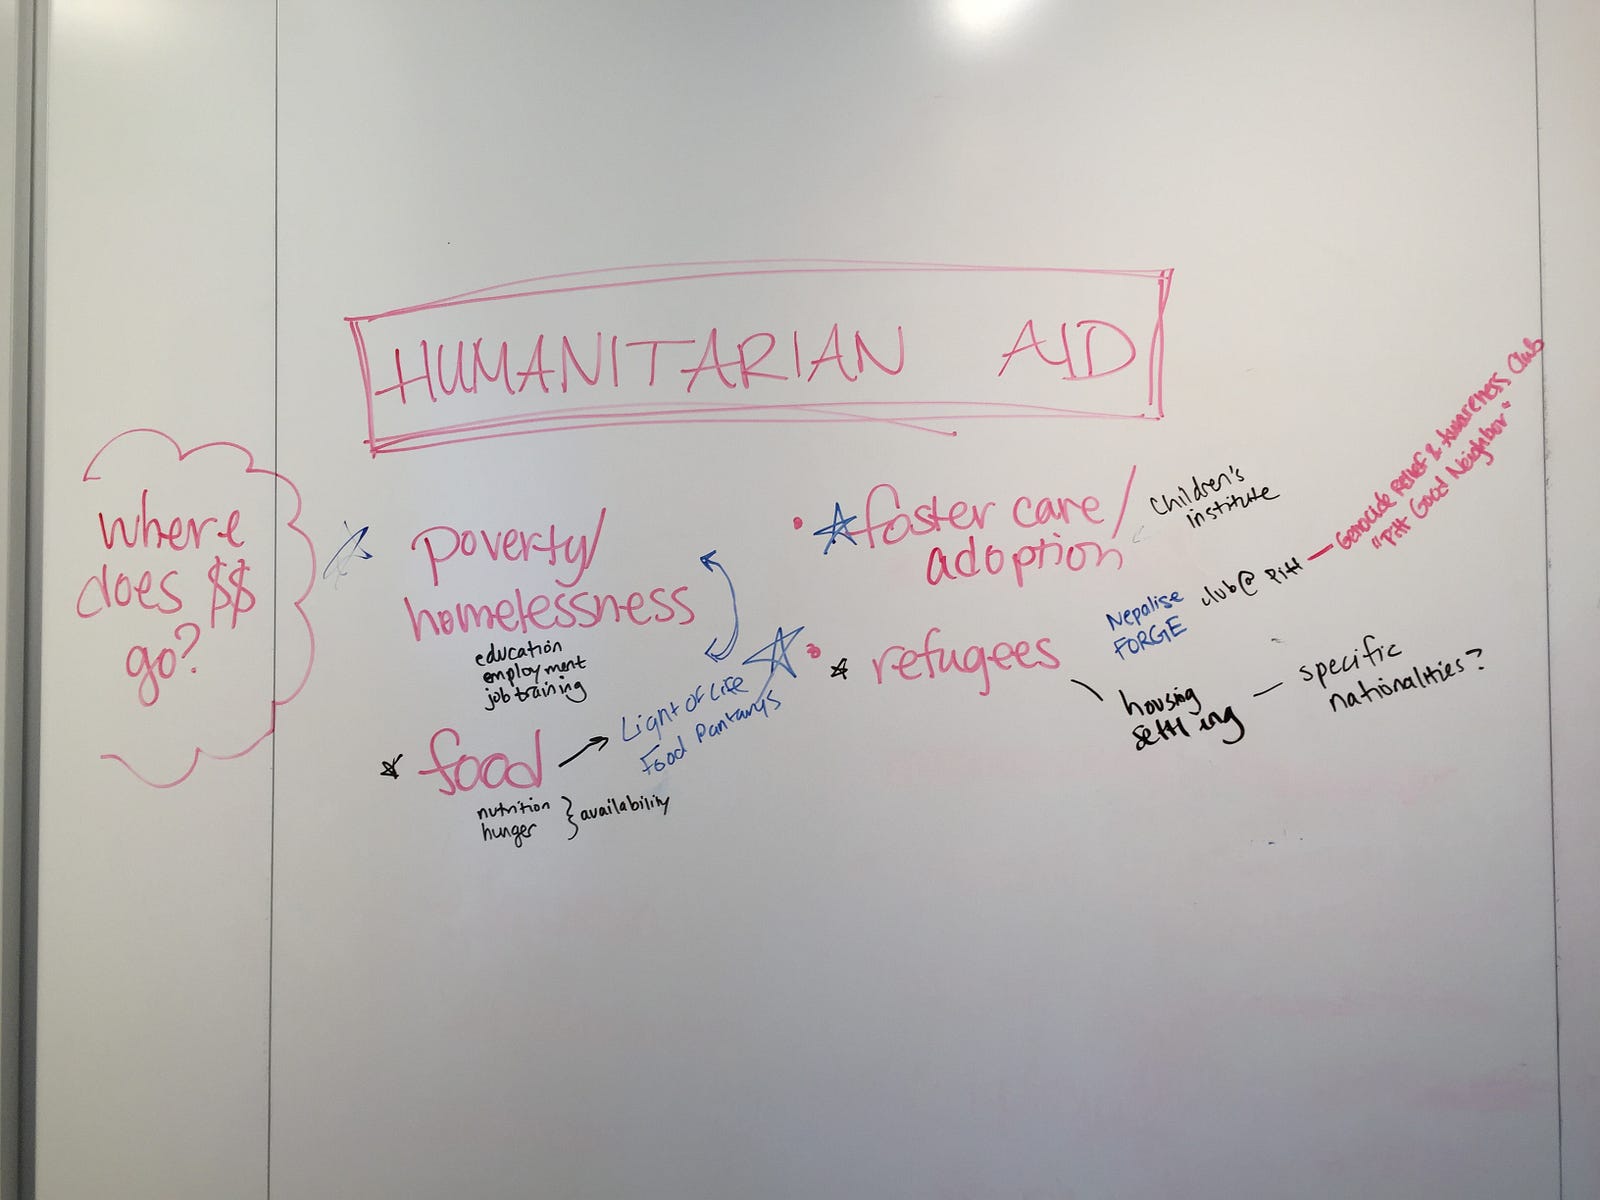 HUMANITARIAN AID
where
does $$
go?
poverty/
homelessness
education
employment
job training
food
nutrition
hunger
availability
Light of Life
Food Pantarys
foster care/
adoption
Children's
institute
refugees
Nepalise
FORGE
club@ Pitt
Genocide Relief & Awareness Club
"Pitt Good Neighbor"
housing
settling
specific
nationalities?